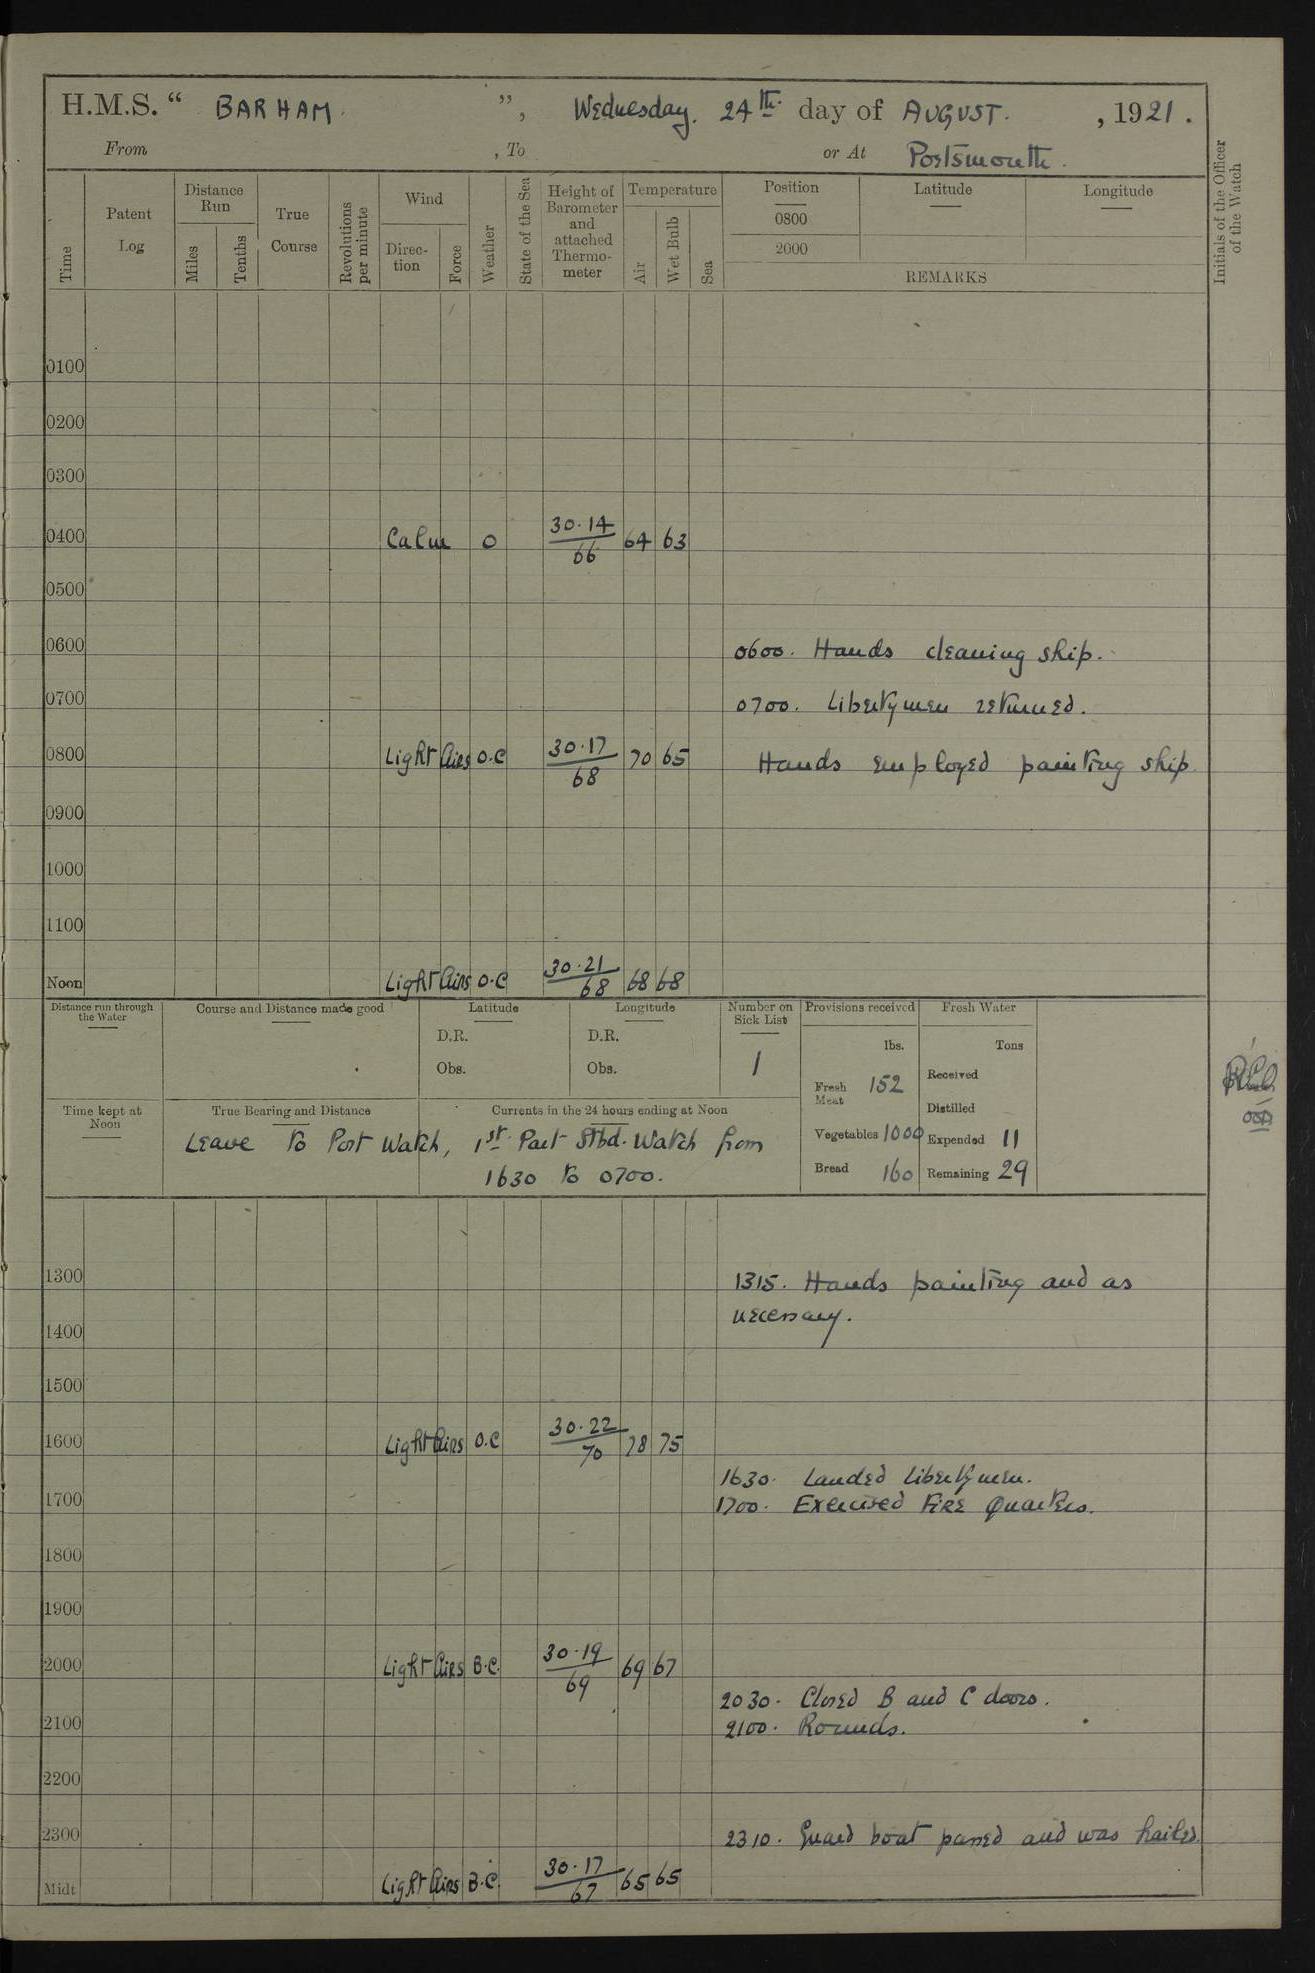 H.M.S. “ BARHAM. ”, Wednesday. 24th. day of AUGUST. , 1921.
From , To or At Portsmouth.
Time
Patent Log
Distance Run
Miles
Tenths
True Course
Revolutions per minute
Wind
Direc-tion
Force
Weather
State of the Sea
Height of Barometer and attached Thermo-meter
Temperature
Air
Wet Bulb
Sea
Position Latitude Longitude
0800
2000
REMARKS
Initials of the Officer of the Watch
0100
0200
0300
0400 Calm O 30.14/66 64 63
0500
0600 0600. Hands cleaning ship.
0700 0700. Libertymen returned.
0800 Light Airs O.C 30.17/68 70 65 Hands employed painting ship
0900
1000
1100
Noon Light Airs O.C 30.21/68 68 68
Distance run through the Water
Course and Distance made good
Latitude
D.R.
Obs.
Longitude
D.R.
Obs.
Number on Sick List
1
Provisions received
lbs.
Fresh Meat 152
Vegetables 1000
Bread 160
Fresh Water
Tons
Received
Distilled
Expended 11
Remaining 29
Time kept at Noon
True Bearing and Distance
Currents in the 24 hours ending at Noon
Leave to Port Watch, 1st. Part Stbd. Watch from
1630 to 0700.
1300 1315. Hands painting and as
necessary.
1400
1500
1600 Light Airs O.C 30.22/70 78 75
1630. Landed Libertymen.
1700 1700. Exercised Fire Quarters.
1800
1900
2000 Light Airs B.C. 30.19/69 69 67
2030. Closed B and C doors.
2100 2100. Rounds.
2200
2300 2310. Guard boat passed and was hailed.
Midt. Light Airs B.C. 30.17/67 65 65